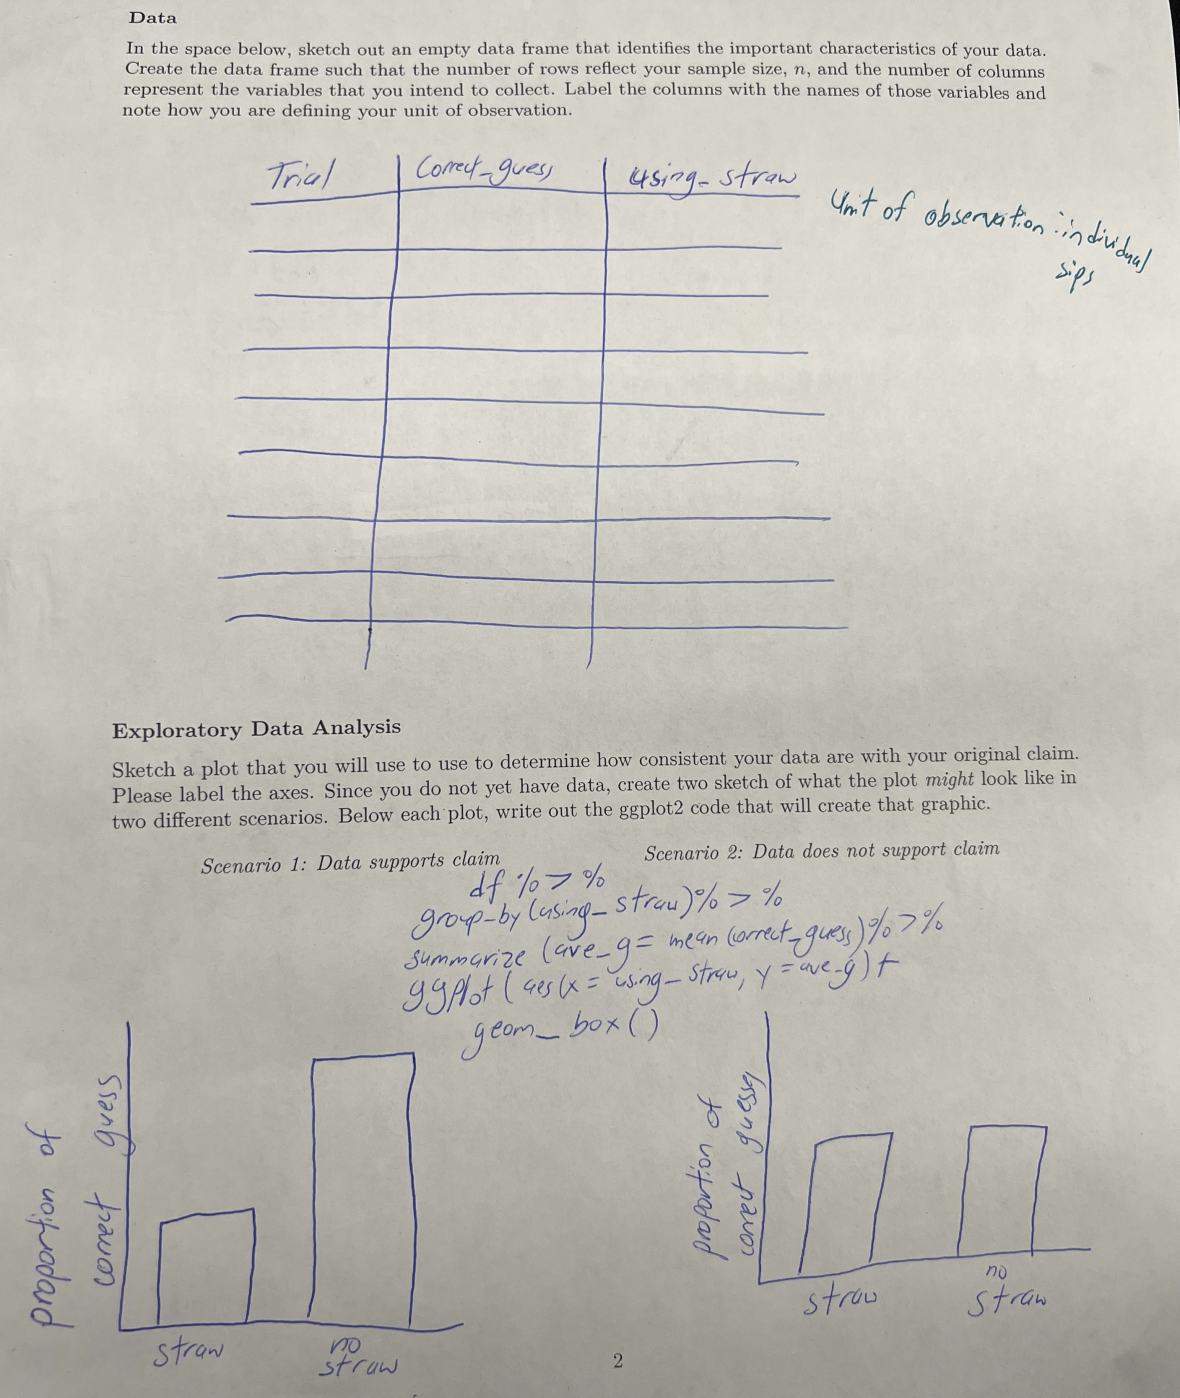 Data
In the space below, sketch out an empty data frame that identifies the important characteristics of your data.
Create the data frame such that the number of rows reflect your sample size, n, and the number of columns
represent the variables that you intend to collect. Label the columns with the names of those variables and
note how you are defining your unit of observation.
Trial Correct_guess using_straw
Unit of observation: individual
sips
Exploratory Data Analysis
Sketch a plot that you will use to use to determine how consistent your data are with your original claim.
Please label the axes. Since you do not yet have data, create two sketch of what the plot might look like in
two different scenarios. Below each plot, write out the ggplot2 code that will create that graphic.
Scenario 1: Data supports claim Scenario 2: Data does not support claim
df %>%
group_by(using_straw)%>%
summarize (ave_g = mean(correct_guess)%>%
ggplot (aes(x = using_straw, y = ave_g) +
geom_box()
proportion of
correct guess
straw
no
straw
proportion of
correct guesses
straw
no
straw
2